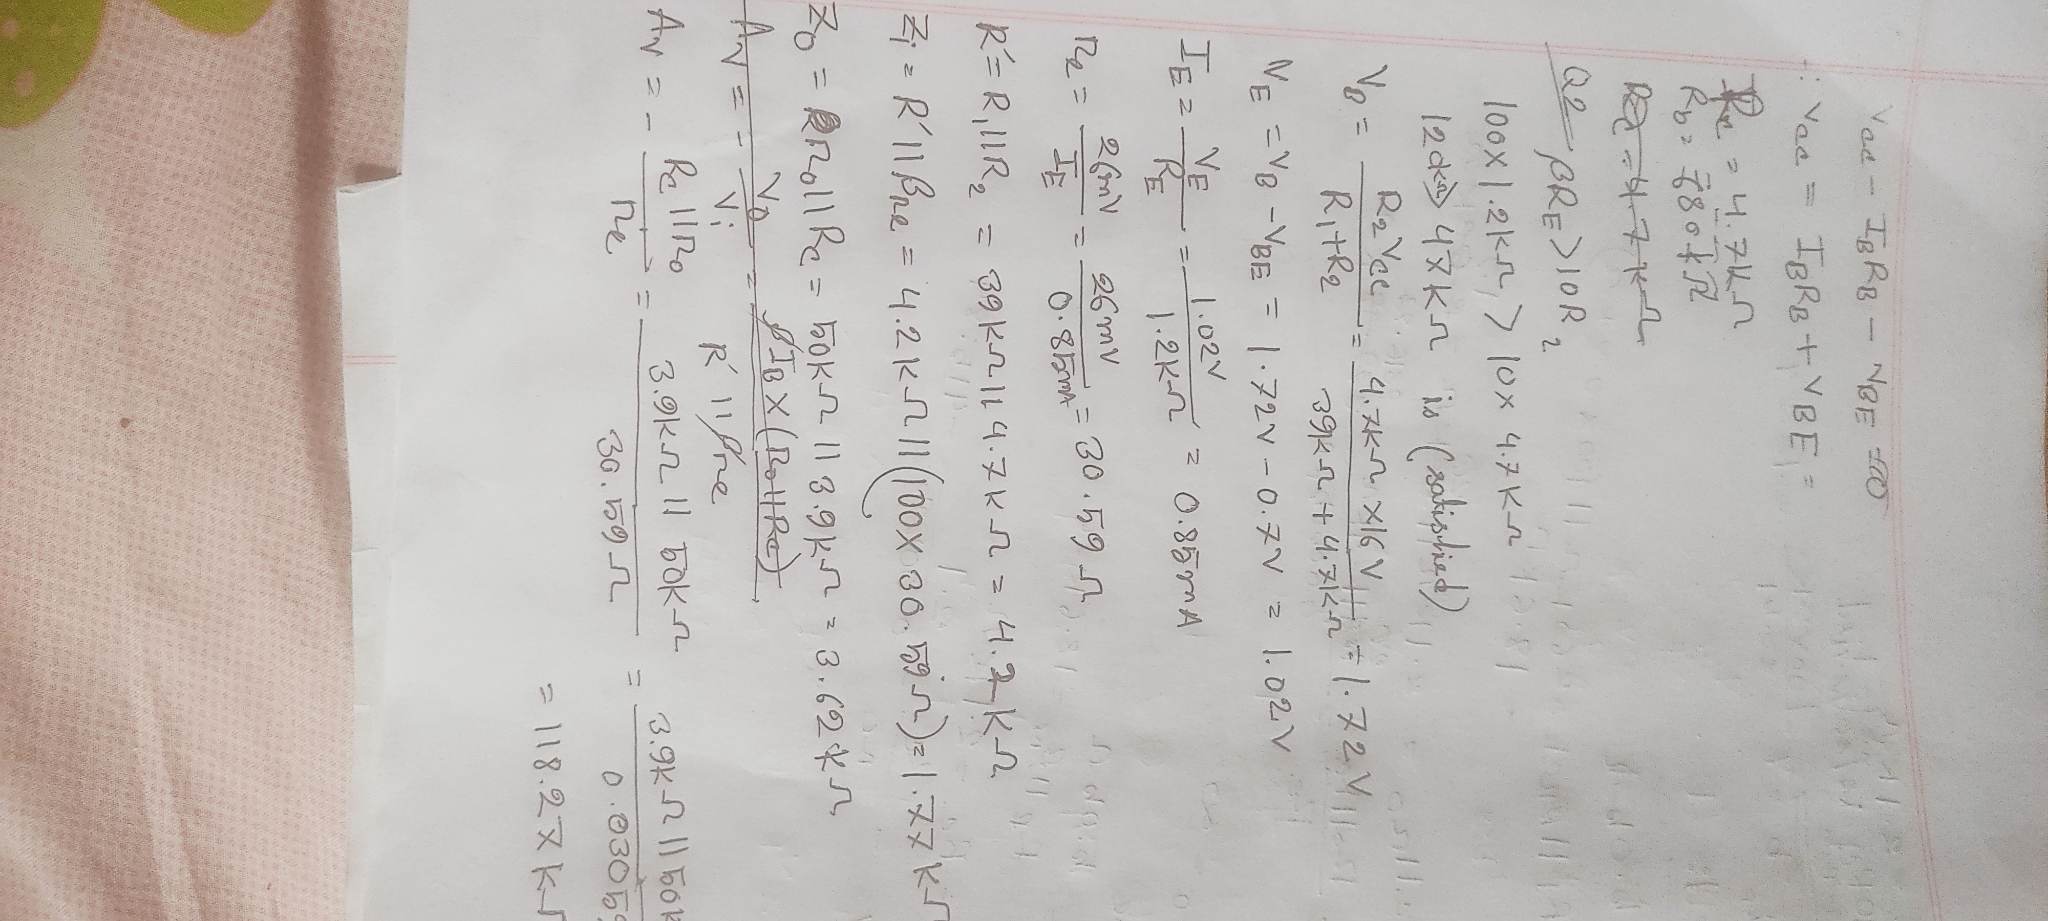 Vcc - IBRB - VBE = 0
∴ Vcc = IBRB + VBE =
Rc = 4.7kΩ
Rb = 680kΩ
Rc = 4.7kΩ
Q2 βRE > 10R2
100 x 1.2kΩ > 10 x 4.7KΩ
120kΩ > 47KΩ is (satisfied)
VB = R2Vcc / R1+R2 = 4.7KΩ x16 V / 39KΩ + 4.7KΩ = 1.72 V
VE = VB - VBE = 1.72V - 0.7V = 1.02V
IE = VE / RE = 1.02V / 1.2KΩ = 0.85mA
re = 26mV / IE = 26mV / 0.85mA = 30.59 Ω
R' = R1||R2 = 39KΩ || 4.7KΩ = 4.2KΩ
Zi = R' || βre = 4.2KΩ || (100x 30.59Ω) = 1.77 KΩ
Zo = ro || Rc = 50KΩ || 3.9KΩ = 3.62 KΩ
Av = - Vo / Vi = βIB x (Ro||Rc) / R' || βre
Av = - Rc || ro / re = 3.9KΩ || 50KΩ / 30.59Ω = 3.9KΩ || 50K / 0.03059
= 118.27 KΩ